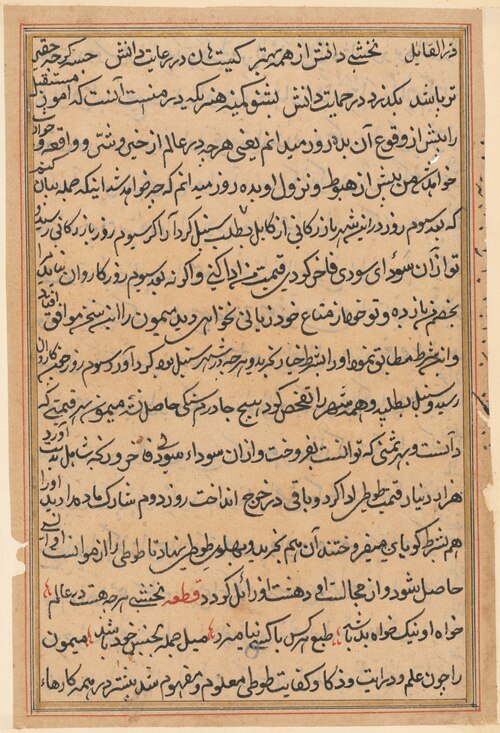 در القایل نخشبی دانش از همه بهتر کیست کان در رعایت دانش حسن کرچه حقیر
تو باشد بکذرد در حمایت دانش بشنو کمینه هنر یکه در منست آنست که امور مستقبل
را پیش از وقوع آن بده روز میدانم یعنی هرچه در عالم از خیر و شر و واقع
خواهد من پیش از هبوط و نزول او بده روز میدانم که چه خواهد شد اینک جمله بیان
که بعد سوم روز در این شهر بازرکانی از کابل بطلب سنبل کرد آر اکر سوم روز بازرکانی رسید
تو از آن سودای سودی فاخر کردی قیمت من ادا کنی و اکر نه بعد سوم روز کاروان نیاید
بخصم من باز ده و تو خود از متاع خود زیانی نخواهی دید میمون را این سخن موافق افتاد
و این شرط مطابق نمود او را بشرط خیار بخرید و هرچه در شهر سنبل بود کرد آورد سوم روز کاروان
رسید و سنبل بطلبید و همه شهر را تفحص کرد هیچ جا درم سنکی حاصل نشد میمون بهر قیمتی که
دانست و بهر ثمنی که توانست بفروخت و از آن سوداء میمون
هزار دینار قیمت طوطی ادا کرد و باقی در خرج انداخت روز دوم شارک ماده را بدید او را
هم بشرط کویایی میفروختند آن هم بخرید و بپهلوی طوطی نهاد تا طوطی را از هوا است
حاصل شود و از مجالست او دهشت او زائل کردد قطعه نخشبی هرچه هست در عالم
خواه او نیک خواه بد باشد طبع هرکس باکسی نیامیزد میل جمله بجنس خود باشد میمون
را چون علم و درایت و ذکا و کفایت طوطی معلوم و مفهوم شد بیشتر در همه کارهاء